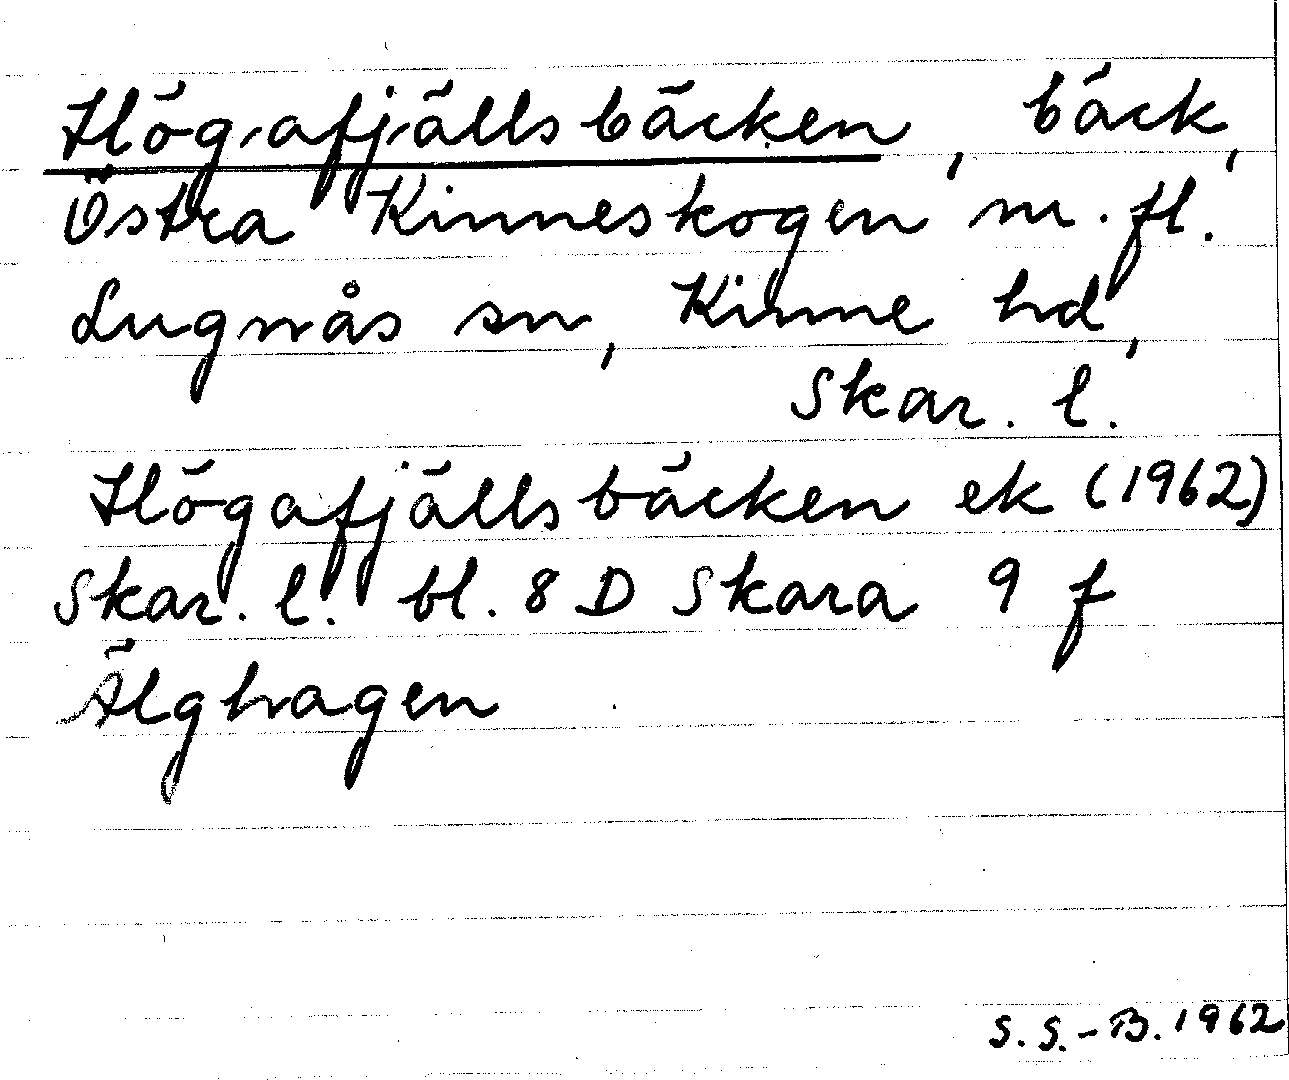 Högafjällsbäcken, bäck,
Östra Kinneskogen m. fl.
Lugnås sn, Kinne hd,
Skar. l.
Högafjällsbäcken ek (1962)
Skar. l. bl. 8 D Skara 9 f
Älghagen
S. S.-B. 1962